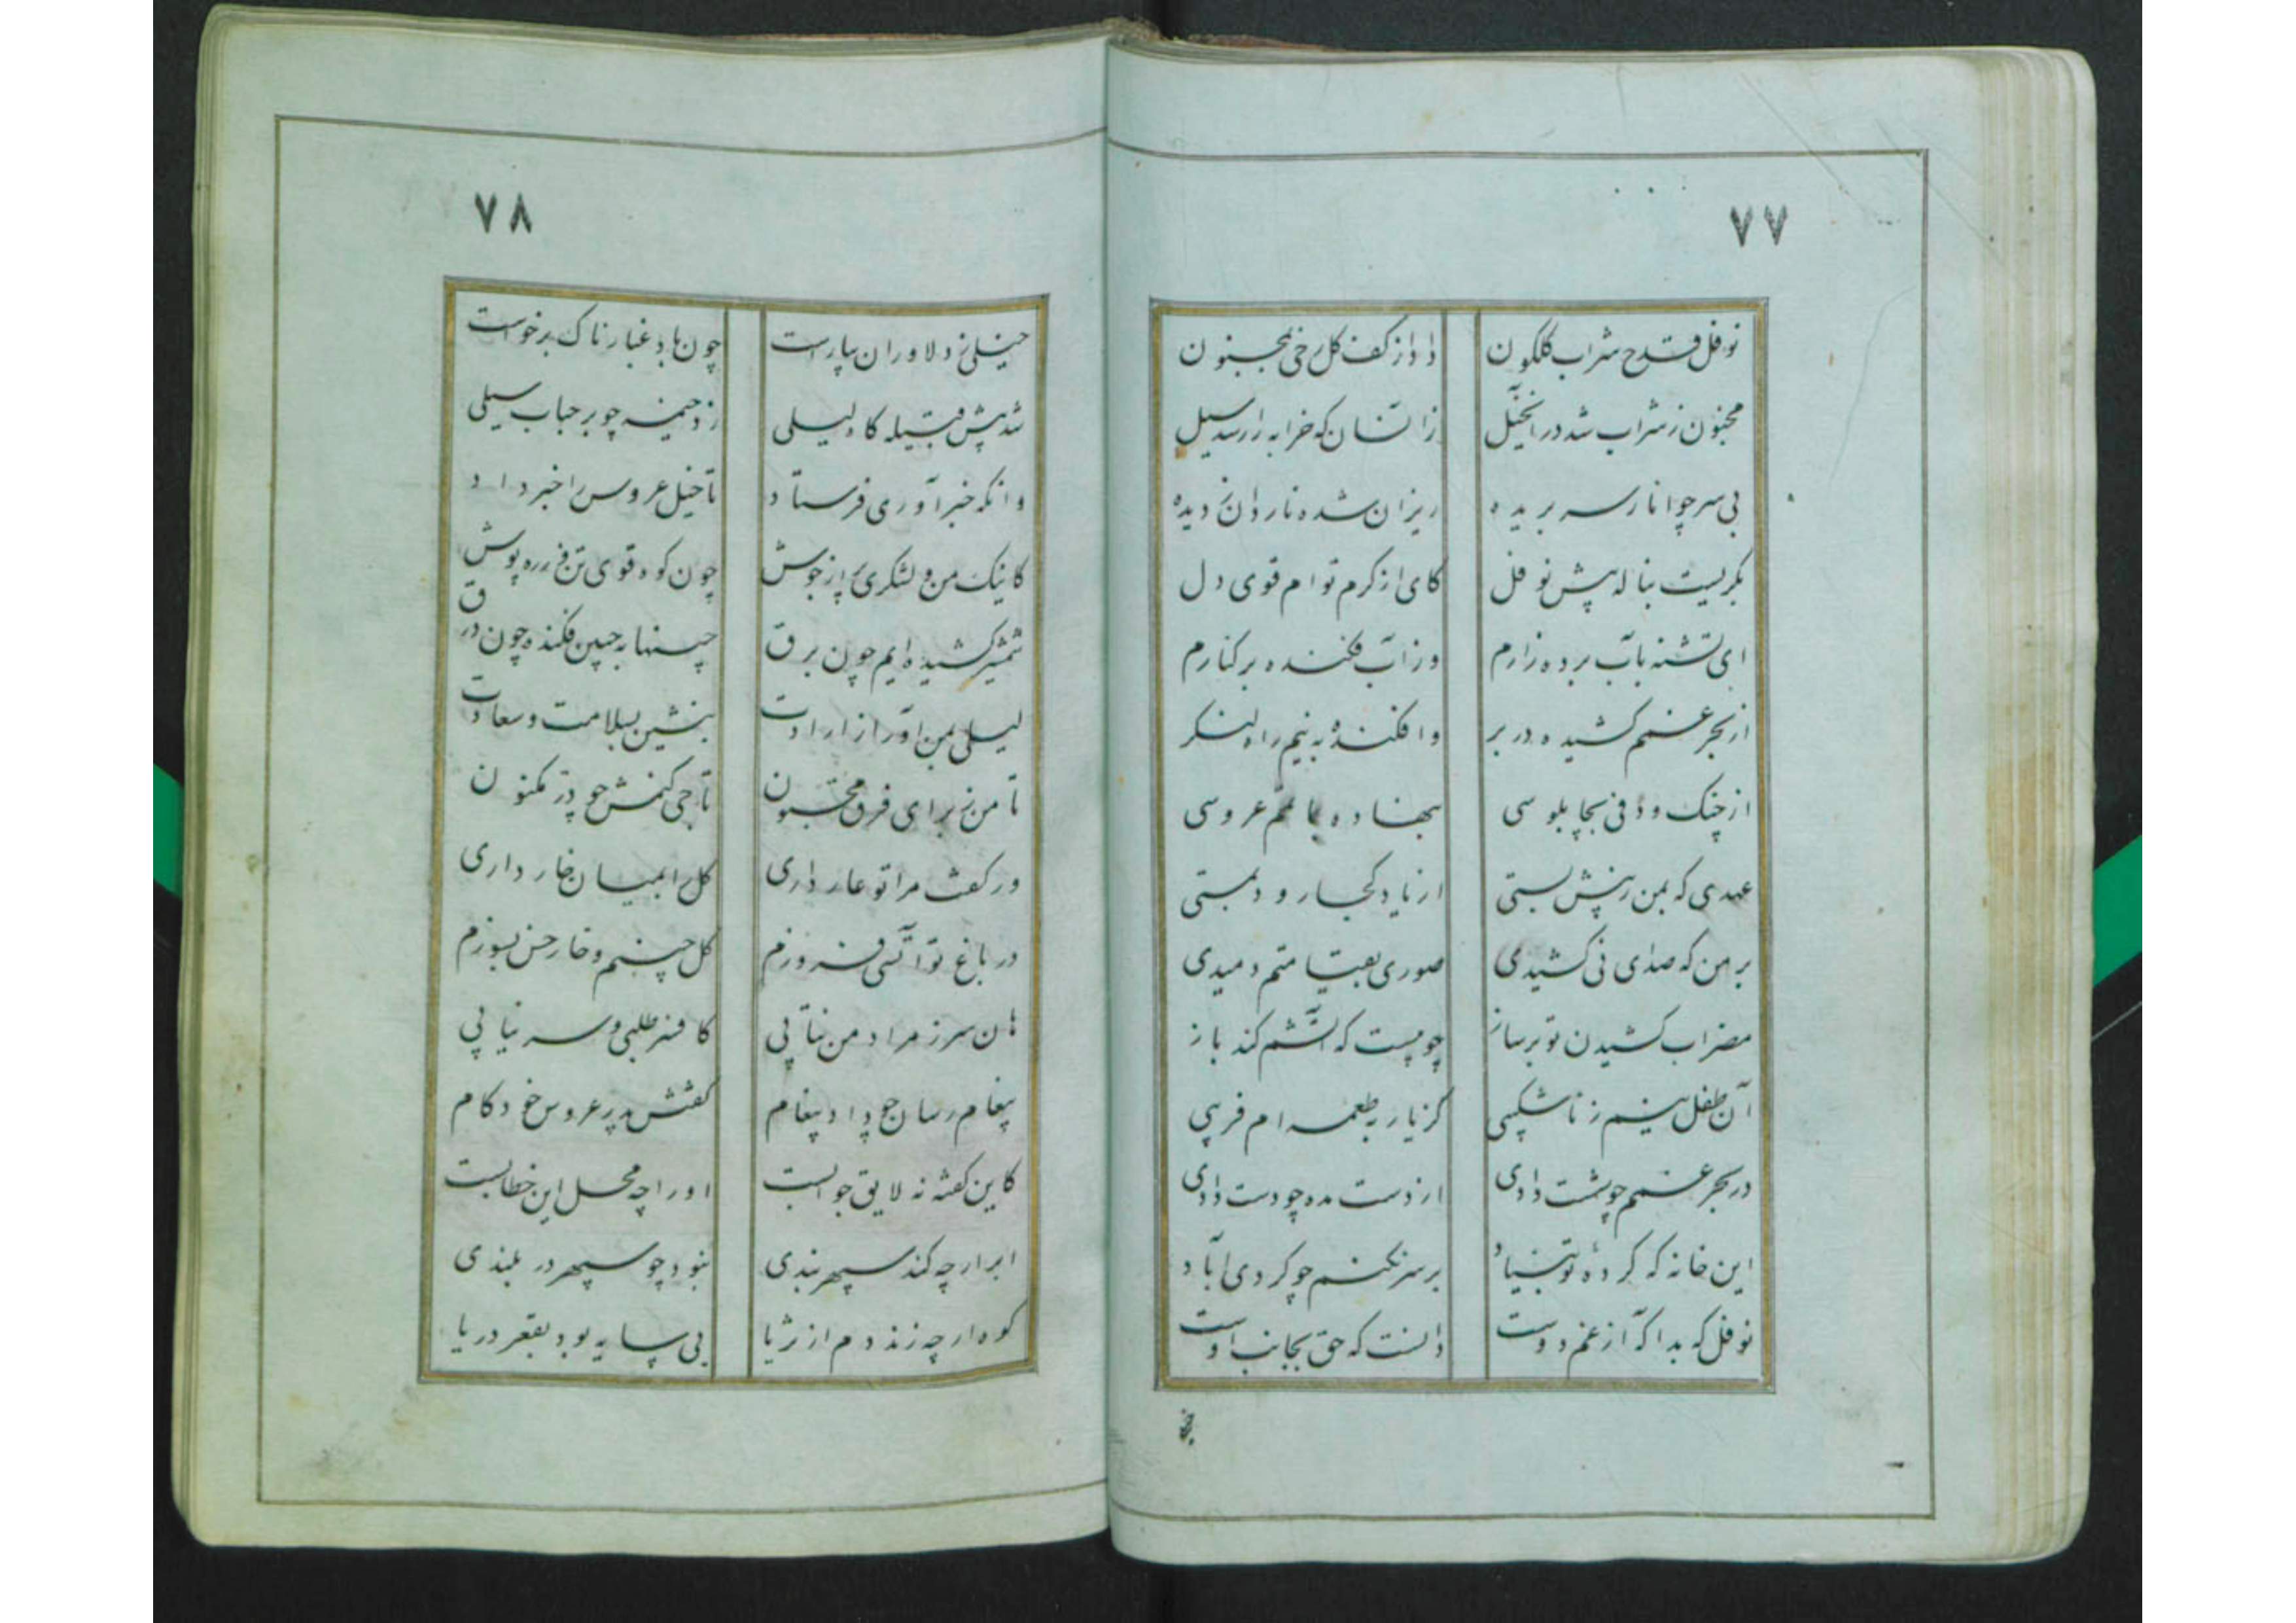 ۷۷
نوفل قدح شراب گلگون داد از کف گلرخی بمجنون
مجنون ز شراب شد در آنخیل زانسان که خرابه را رسد سیل
بی سر چو انار سر بریده ریزان شده ناردان ز دیده
بگریست بناله پیش نوفل کای از کرم توام قوی دل
ای تشنه بآب برده زارم وز آب فکنده بر کنارم
از بحر غمم کشیده در بر وافکنده به نیم راه لنگر
از چنگ و دف نی بچاپلوسی بنهاده عروسی
عهدی که بمن ز پیش بستی از یاد کجا رود بمستی
بر من که صدای نی کشیدی صوری بقیامتم دمیدی
مضراب کشیدن تو بر ساز چوبیست که آتشم کند باز
آن طفل نیم ز ناشکیبی کز یار به طعمه ام فریبی
در بحر غمم چو پشت دادی از دست مده چو دست دادی
این خانه که کردهٔ تو بنیاد بر سر نکنم چو کردی آباد
نوفل که بد آگه از غم دوست دانست که حق بجانب اوست
۷۸
خیلی ز دلاوران بیاراست چون باد غبارناک برخواست
شد پیش قبیله گاه لیلی زد خیمه چو بر حباب سیلی
وانگه خبر آوری فرستاد تا خیل عروس را خبر داد
کاینک من و لشکری پر از جوش چون کوه قوی تن زره پوش
شمشیر کشیده ایم چون برق چینها به جبین فکنده چون درق
لیلی بمن آور از ارادت بنشین بسلامت و سعادت
تا من ز برای فرق مجنون تاجی کنمش چو در مکنون
ور گفت مرا تو عار داری گل را بمیان خار داری
در باغ تو آتشی فروزم گل چینم و خار و خس بسوزم
هان سر ز مراد من نتابی کافسر طلبی و سر نیابی
پیغام رسان چو داد پیغام گفتش پدر عروس خود کام
کاین گفته نه لایق جوابست او را چه محل این خطابست
ابر ار چه کند سپهر بندی نبود چو سپهر در بلندی
کوه ار چه زند دم از ثریا بی سایه بود بقعر دریا